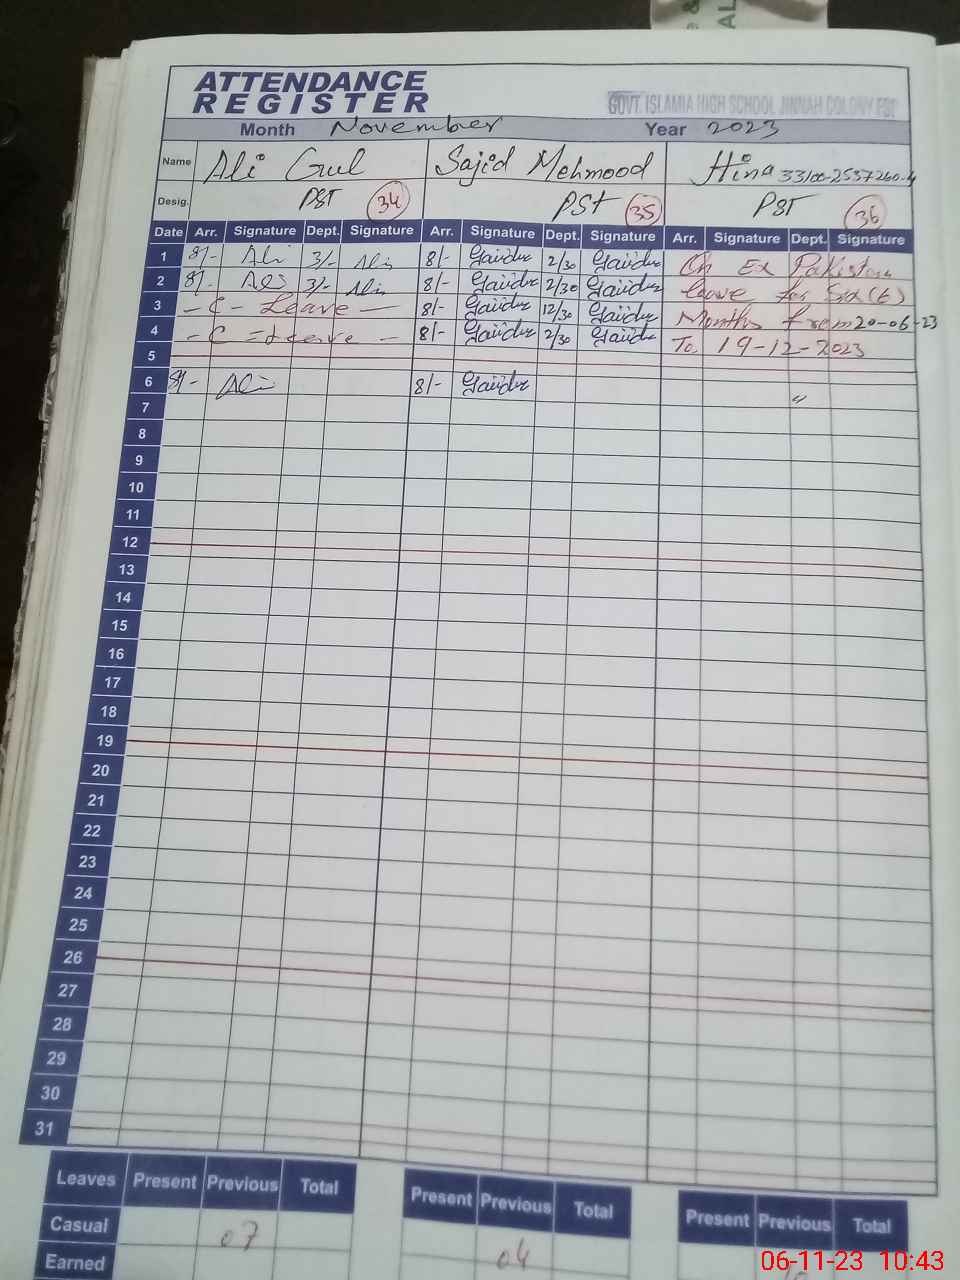 ATTENDANCE
REGISTER
GOVT. ISLAMIA HIGH SCHOOL JINNAH COLONY FSD
Month November Year 2023
Name Ali Gul Sajid Mehmood Hina 33100-2537260-4
Desig. PST 34 PST 35 PST 36
Date Arr. Signature Dept. Signature Arr. Signature Dept. Signature Arr. Signature Dept. Signature
1 8/- Ali 3/- Ali 8/- 2/30 On Ex Pakistan
2 8/- Ali 3/- Ali 8/- 2/30 leave for Six (6)
3 - C - Leave - 8/- 12/30 Months from 20-06-23
4 - C - Leave - 8/- 2/30 To 19-12-2023
5
6 8/- Ali 8/-
7 "
8
9
10
11
12
13
14
15
16
17
18
19
20
21
22
23
24
25
26
27
28
29
30
31
Leaves Present Previous Total Present Previous Total Present Previous Total
Casual 07 04
Earned
06-11-23 10:43